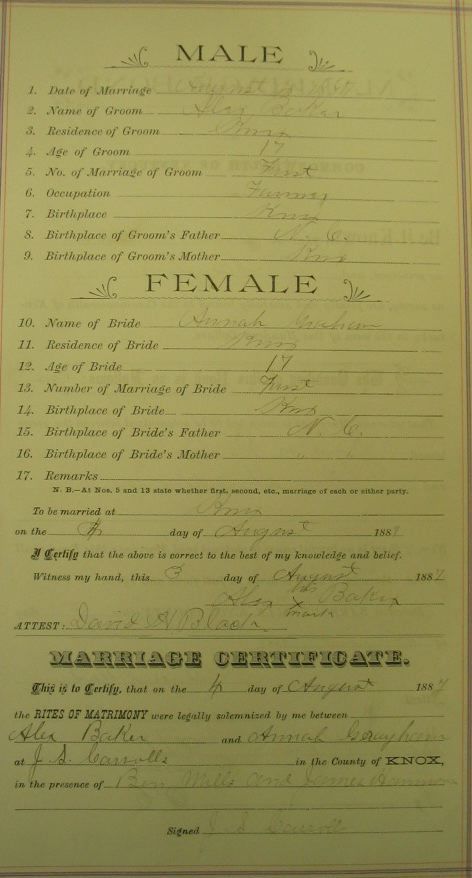 MALE
1. Date of Marriage August
2. Name of Groom Alex Baker
3. Residence of Groom Knox
4. Age of Groom 17
5. No. of Marriage of Groom First
6. Occupation Farmer
7. Birthplace Knox
8. Birthplace of Groom's Father N. C.
9. Birthplace of Groom's Mother Knox
FEMALE
10. Name of Bride Annah
11. Residence of Bride Knox
12. Age of Bride 17
13. Number of Marriage of Bride First
14. Birthplace of Bride Knox
15. Birthplace of Bride's Father N. C.
16. Birthplace of Bride's Mother " "
17. Remarks
N. B.—At Nos. 5 and 13 state whether first, second, etc., marriage of each or either party.
To be married at Knox
on the 4 day of August 1887
I Certify that the above is correct to the best of my knowledge and belief.
Witness my hand, this 3 day of August 1887
Alex his Baker
x mark
ATTEST. David H Black
MARRIAGE CERTIFICATE.
This is to Certify, that on the 4 day of August 1887
the RITES OF MATRIMONY were legally solemnized by me between
Alex Baker and Annah
at J. S. Carrolls in the County of KNOX,
in the presence of Ben Mills and James Hammon
Signed J S Carroll